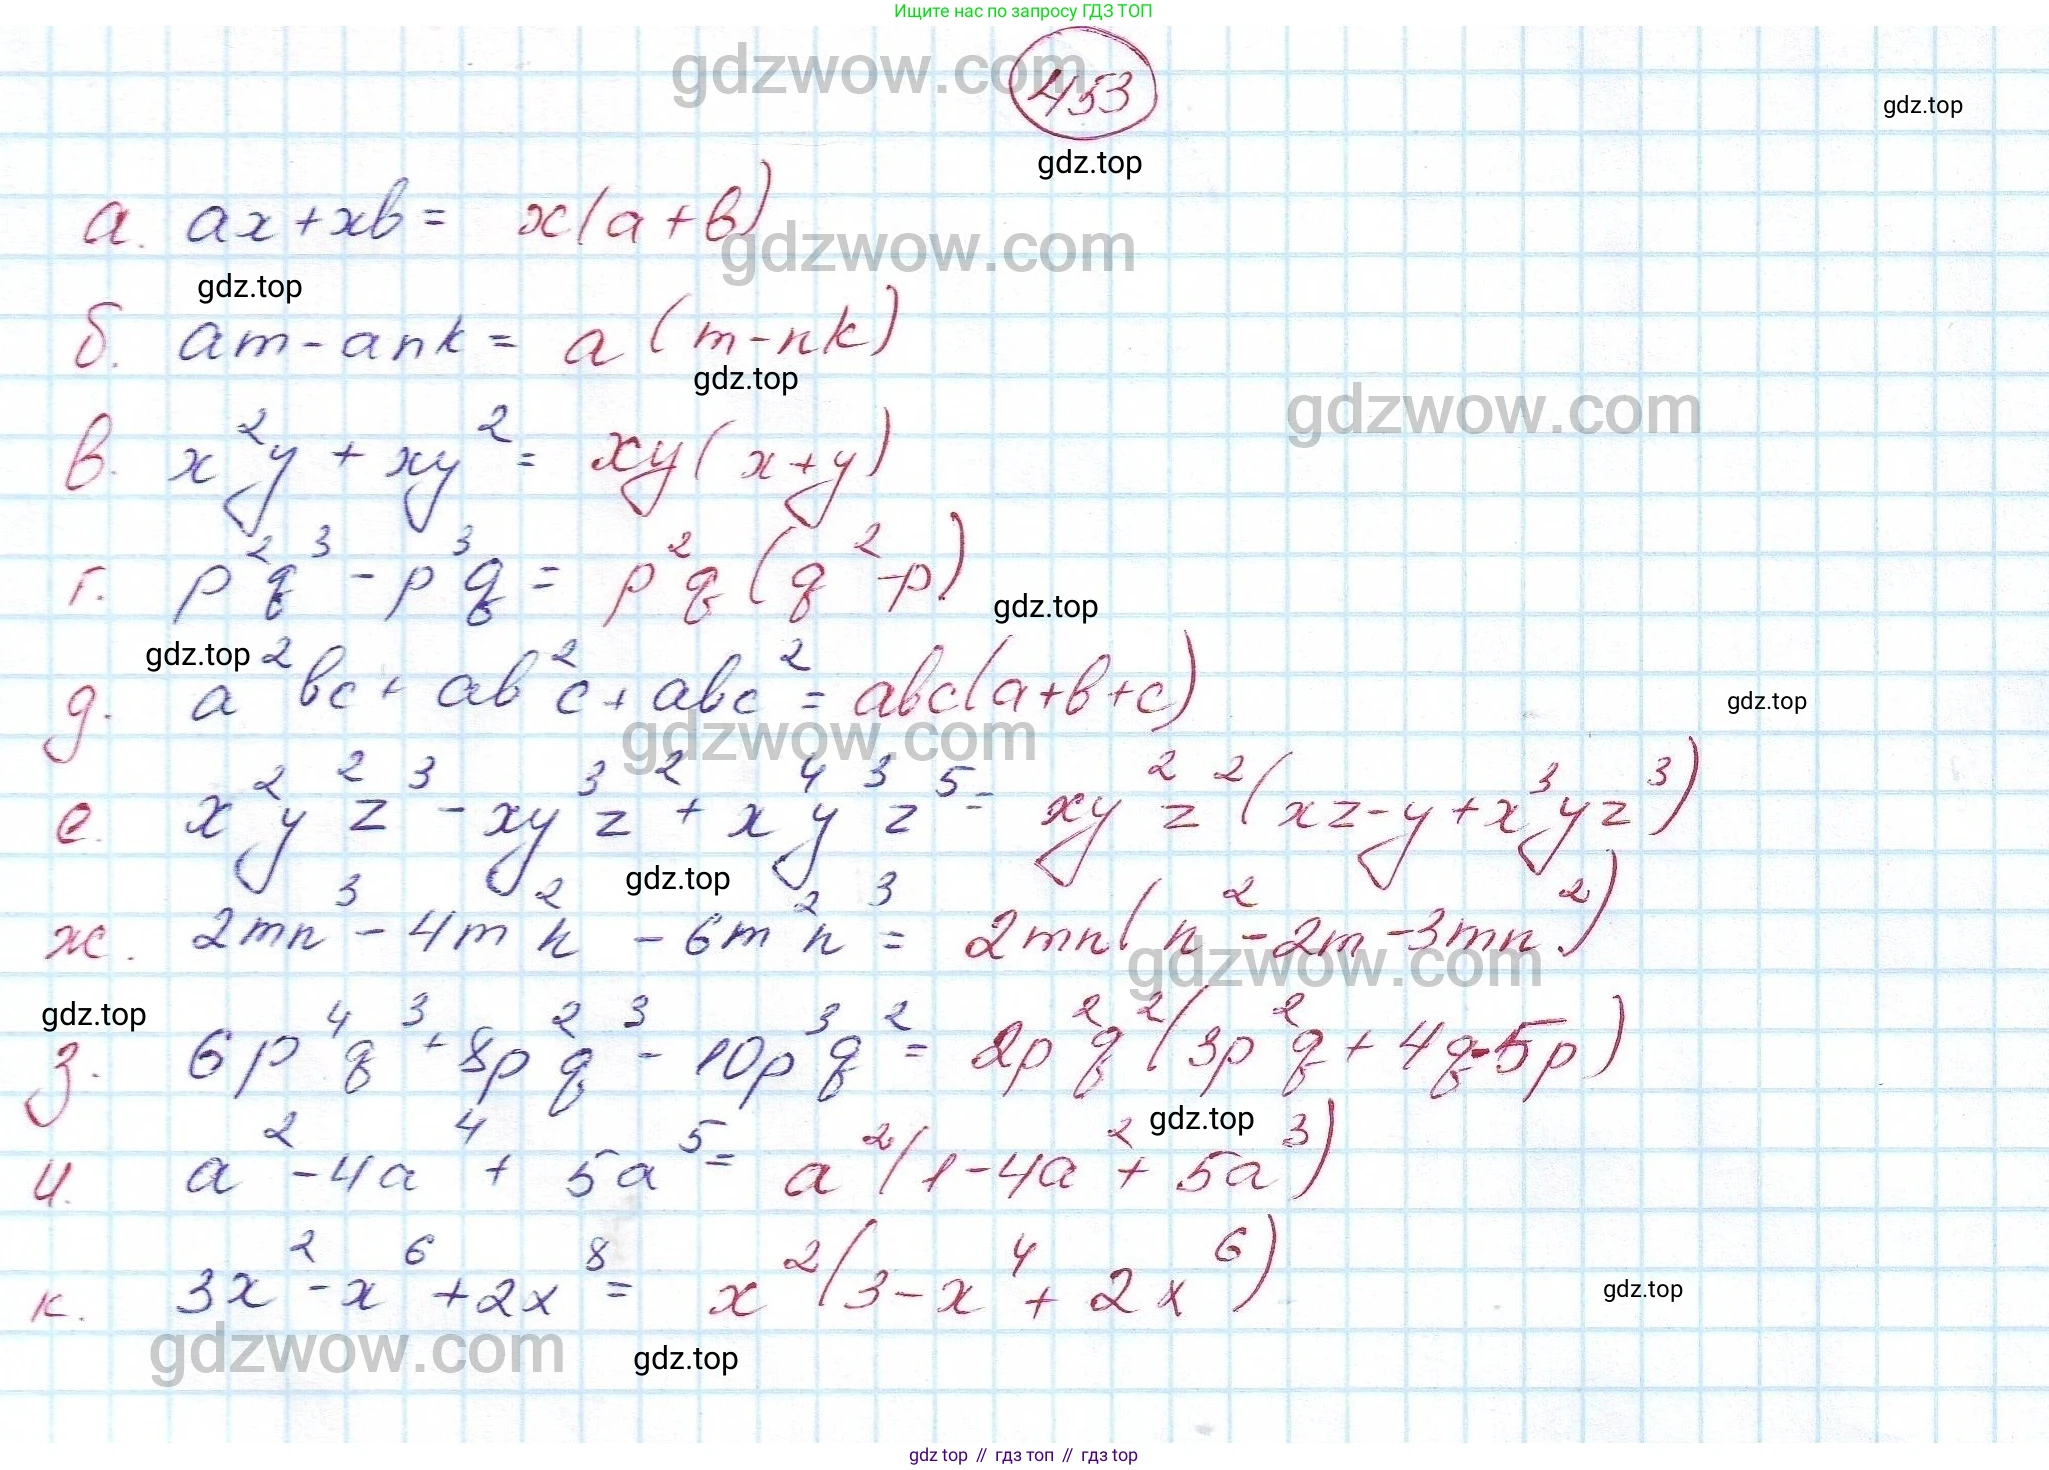 Ищите нас по запросу ГДЗ ТОП
gdzwow.com
453
gdz.top
gdz.top
а. ax + xb = x(a + b)
gdzwow.com
gdz.top
б. am - ank = a(m - nk)
gdz.top
gdzwow.com
в. x²y + xy² = xy(x + y)
г. p²q³ - p³q = p²q(q² - p)
gdz.top
gdz.top
д. a²bc + ab²c + abc² = abc(a + b + c)
gdz.top
gdzwow.com
е. x²y²z³ - xy³z² + x⁴y³z⁵ = xy²z²(xz - y + x³yz³)
gdz.top
ж. 2mn³ - 4m²n - 6m²n³ = 2mn(n² - 2m - 3mn²)
gdzwow.com
gdz.top
з. 6p⁴q³ + 8p²q³ - 10p³q² = 2p²q²(3p²q + 4q - 5p)
gdz.top
и. a² - 4a⁴ + 5a⁵ = a²(1 - 4a² + 5a³)
к. 3x² - x⁶ + 2x⁸ = x²(3 - x⁴ + 2x⁶)
gdz.top
gdzwow.com
gdz.top
gdz top // гдз топ // gdz top